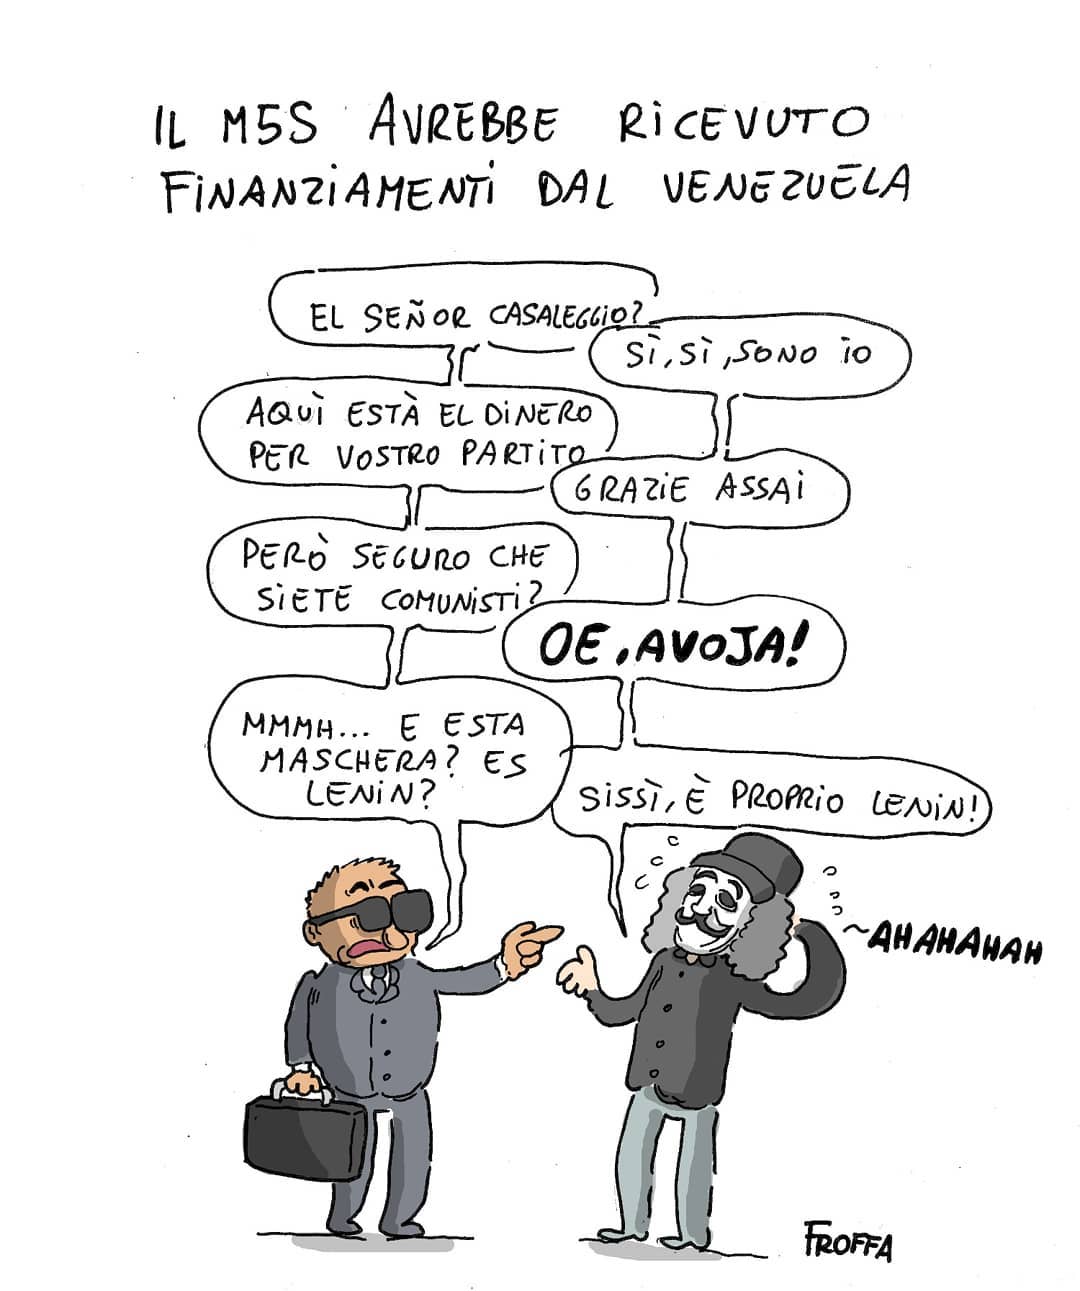 IL M5S AVREBBE RICEVUTO
FINANZIAMENTI DAL VENEZUELA
EL SEÑOR CASALEGGIO?
SÌ, SÌ, SONO IO
AQUÌ ESTÀ EL DINERO
PER VOSTRO PARTITO
GRAZIE ASSAI
PERÒ SEGURO CHE
SIETE COMUNISTI?
OE, AVOJA!
MMMH... E ESTA
MASCHERA? ES
LENIN?
SISSÌ, È PROPRIO LENIN!
~AHAHAHAH
FROFFA